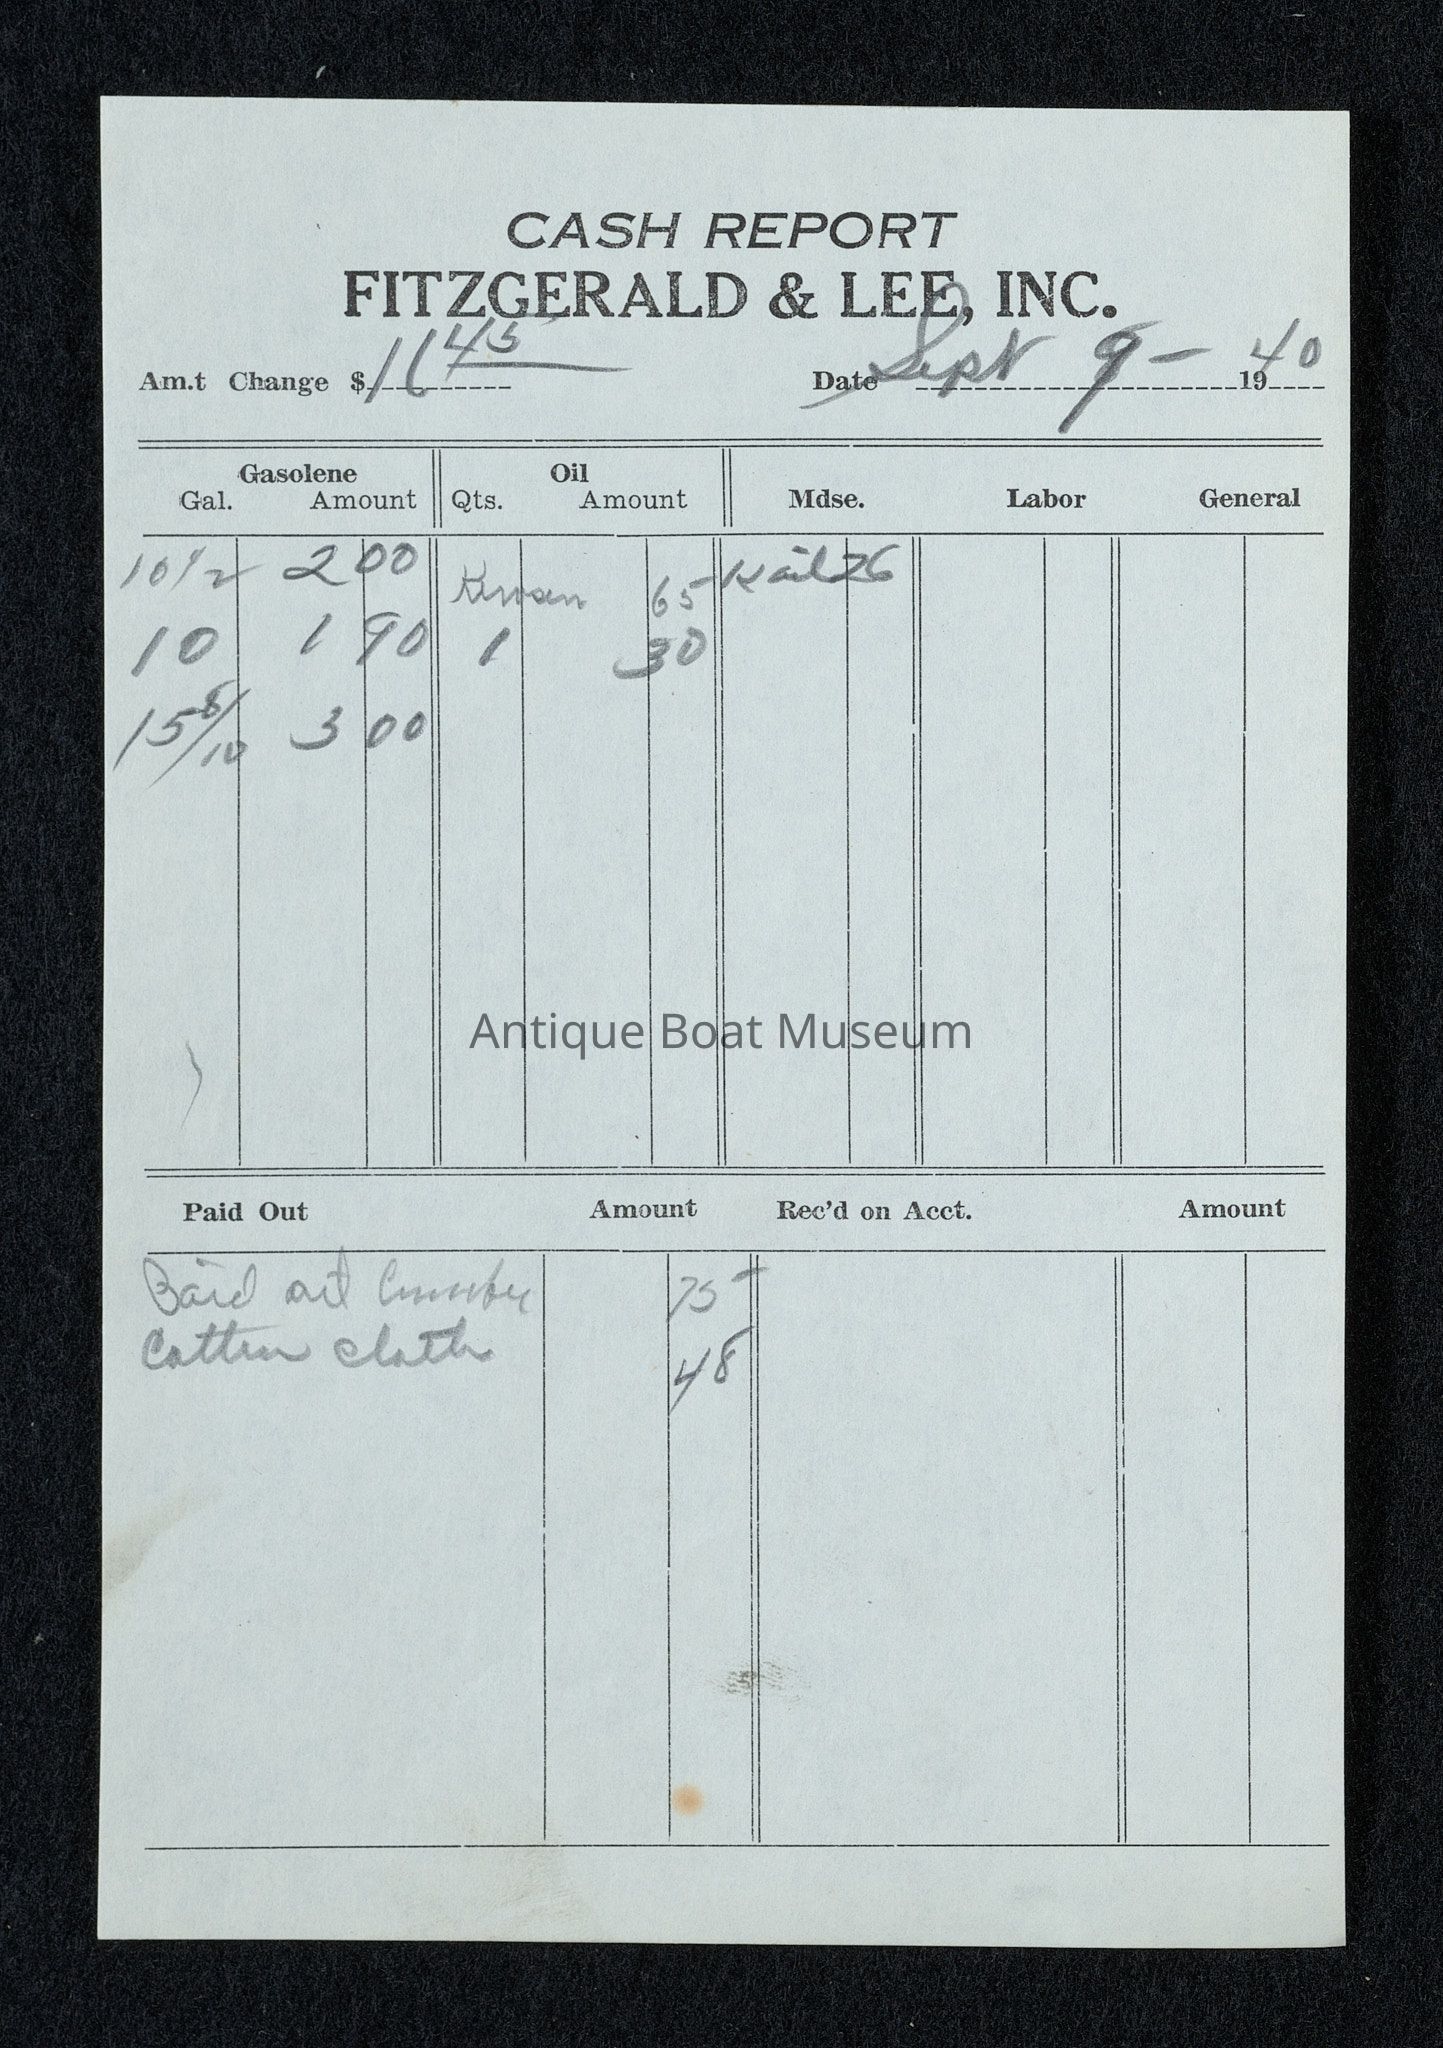 CASH REPORT
FITZGERALD & LEE, INC.
Am.t Change $ 16 45 Date Sept 9 - 1940
Gasolene Oil
Gal. Amount Qts. Amount Mdse. Labor General
10 1/2 2 00 65 26
10 1 90 1 30
15 8/10 3 00
Antique Boat Museum
Paid Out Amount Rec'd on Acct. Amount
75
Cotten cloth 48